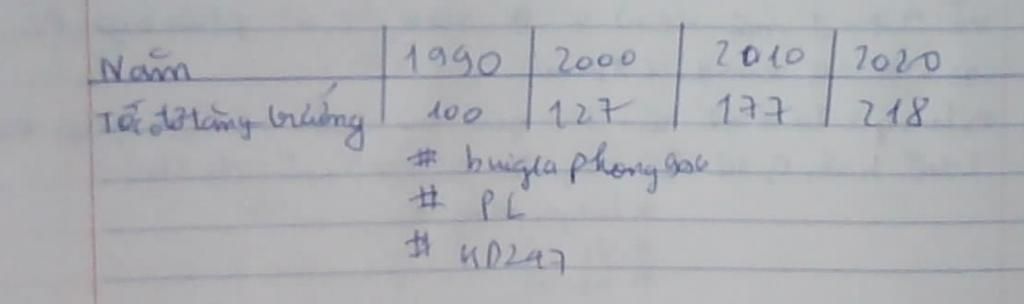 Năm 1990 2000 2010 2020
Tốc độ tăng trưởng 100 127 177 218
# buigiaphong
# PL
# KD247